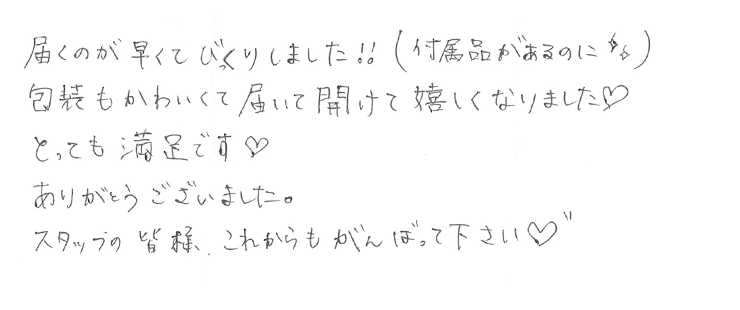 届くのが早くてびっくりしました!!(付属品があるのに✨)
包装もかわいくて届いて開けて嬉しくなりました♡
とっても満足です♡
ありがとうございました。
スタッフの皆様、これからもがんばって下さい♡"